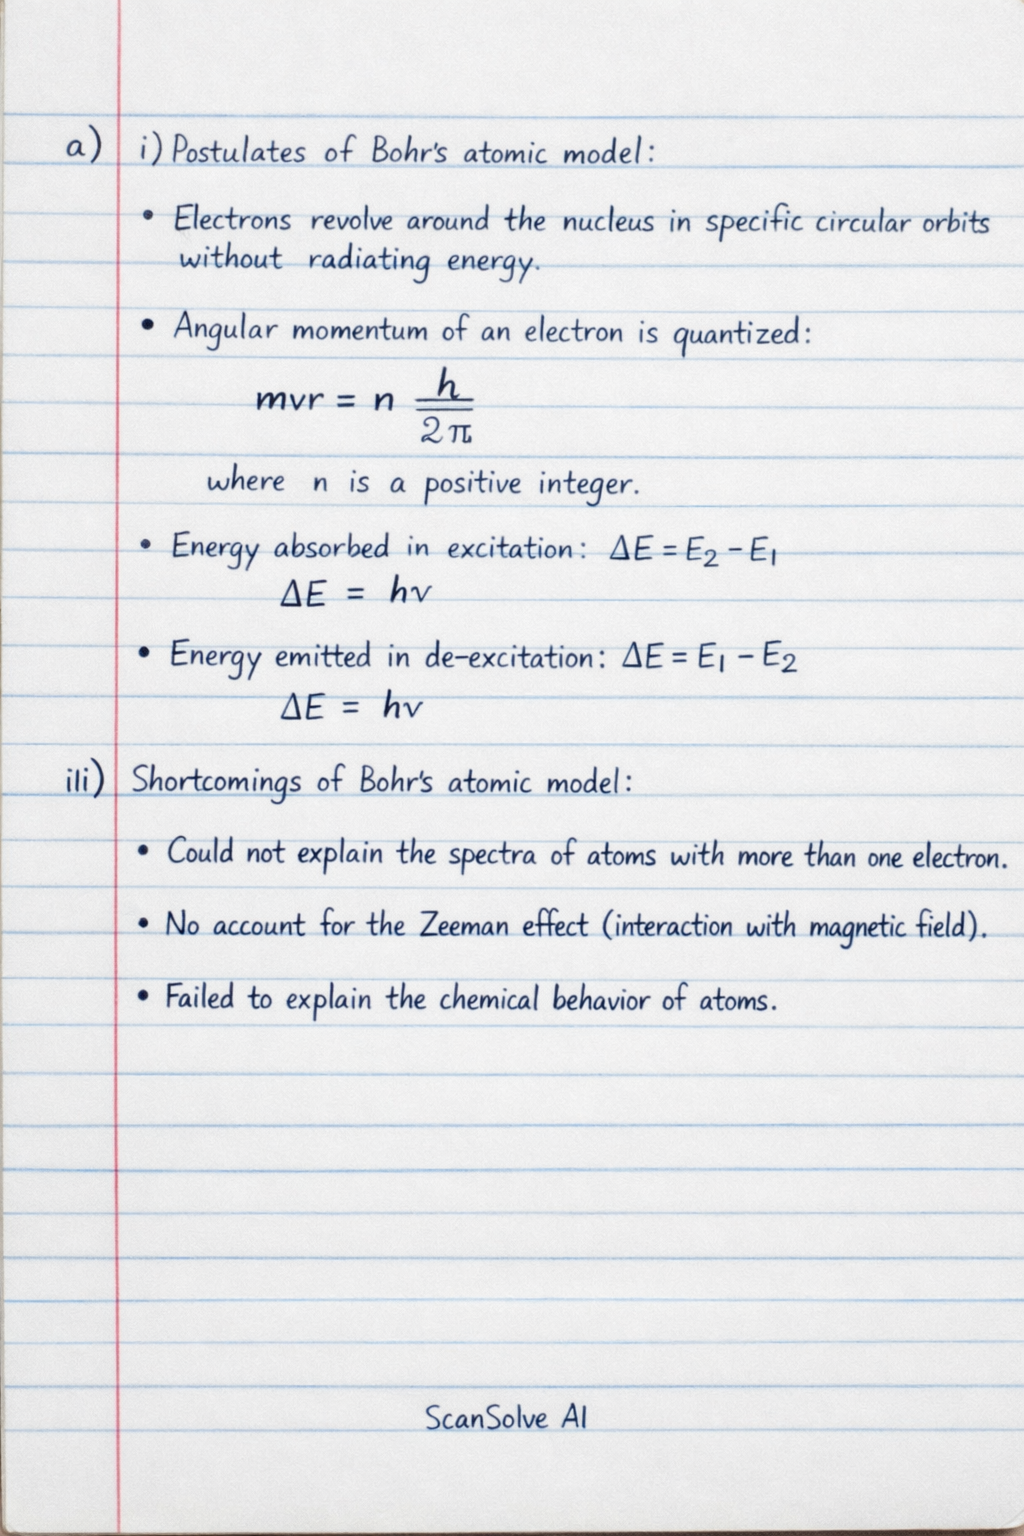 a) i) Postulates of Bohr's atomic model:
• Electrons revolve around the nucleus in specific circular orbits
without radiating energy.
• Angular momentum of an electron is quantized:
mvr = n h/2π
where n is a positive integer.
• Energy absorbed in excitation: ΔE = E₂ − E₁
ΔE = hν
• Energy emitted in de-excitation: ΔE = E₁ − E₂
ΔE = hν
iii) Shortcomings of Bohr's atomic model:
• Could not explain the spectra of atoms with more than one electron.
• No account for the Zeeman effect (interaction with magnetic field).
• Failed to explain the chemical behavior of atoms.
ScanSolve AI